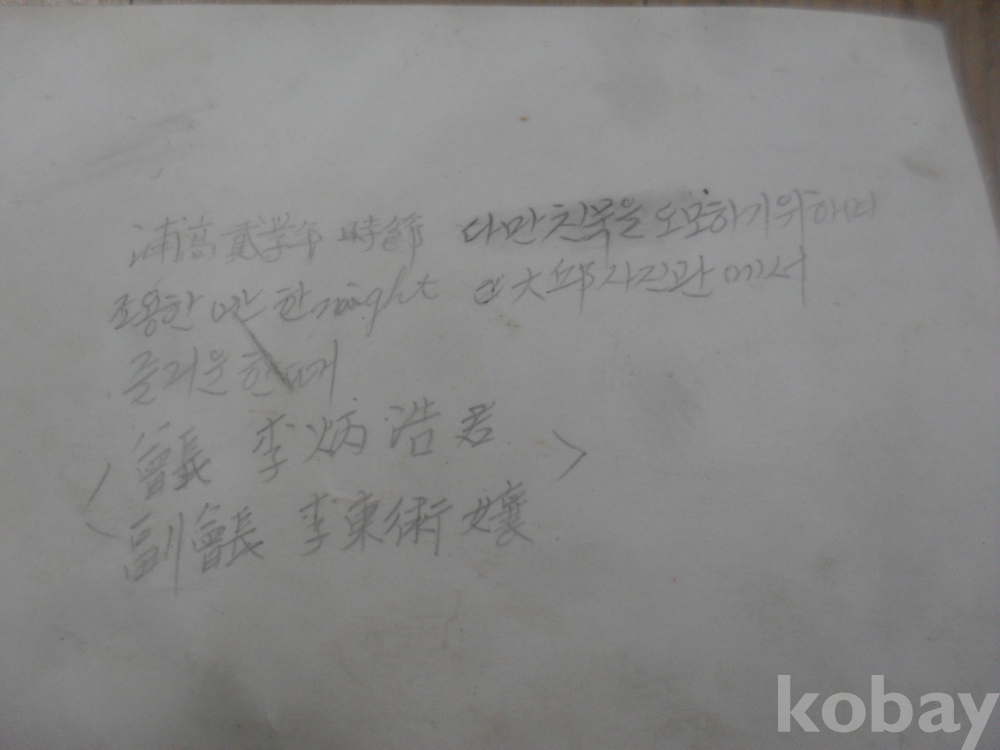 浦高 貳学年 時節 다만 친목을 도모하기 위하여
조용한 한 night 大邱사진관에서
즐거운 한때
會長 李炳浩君
副會長 李東術孃
kobay